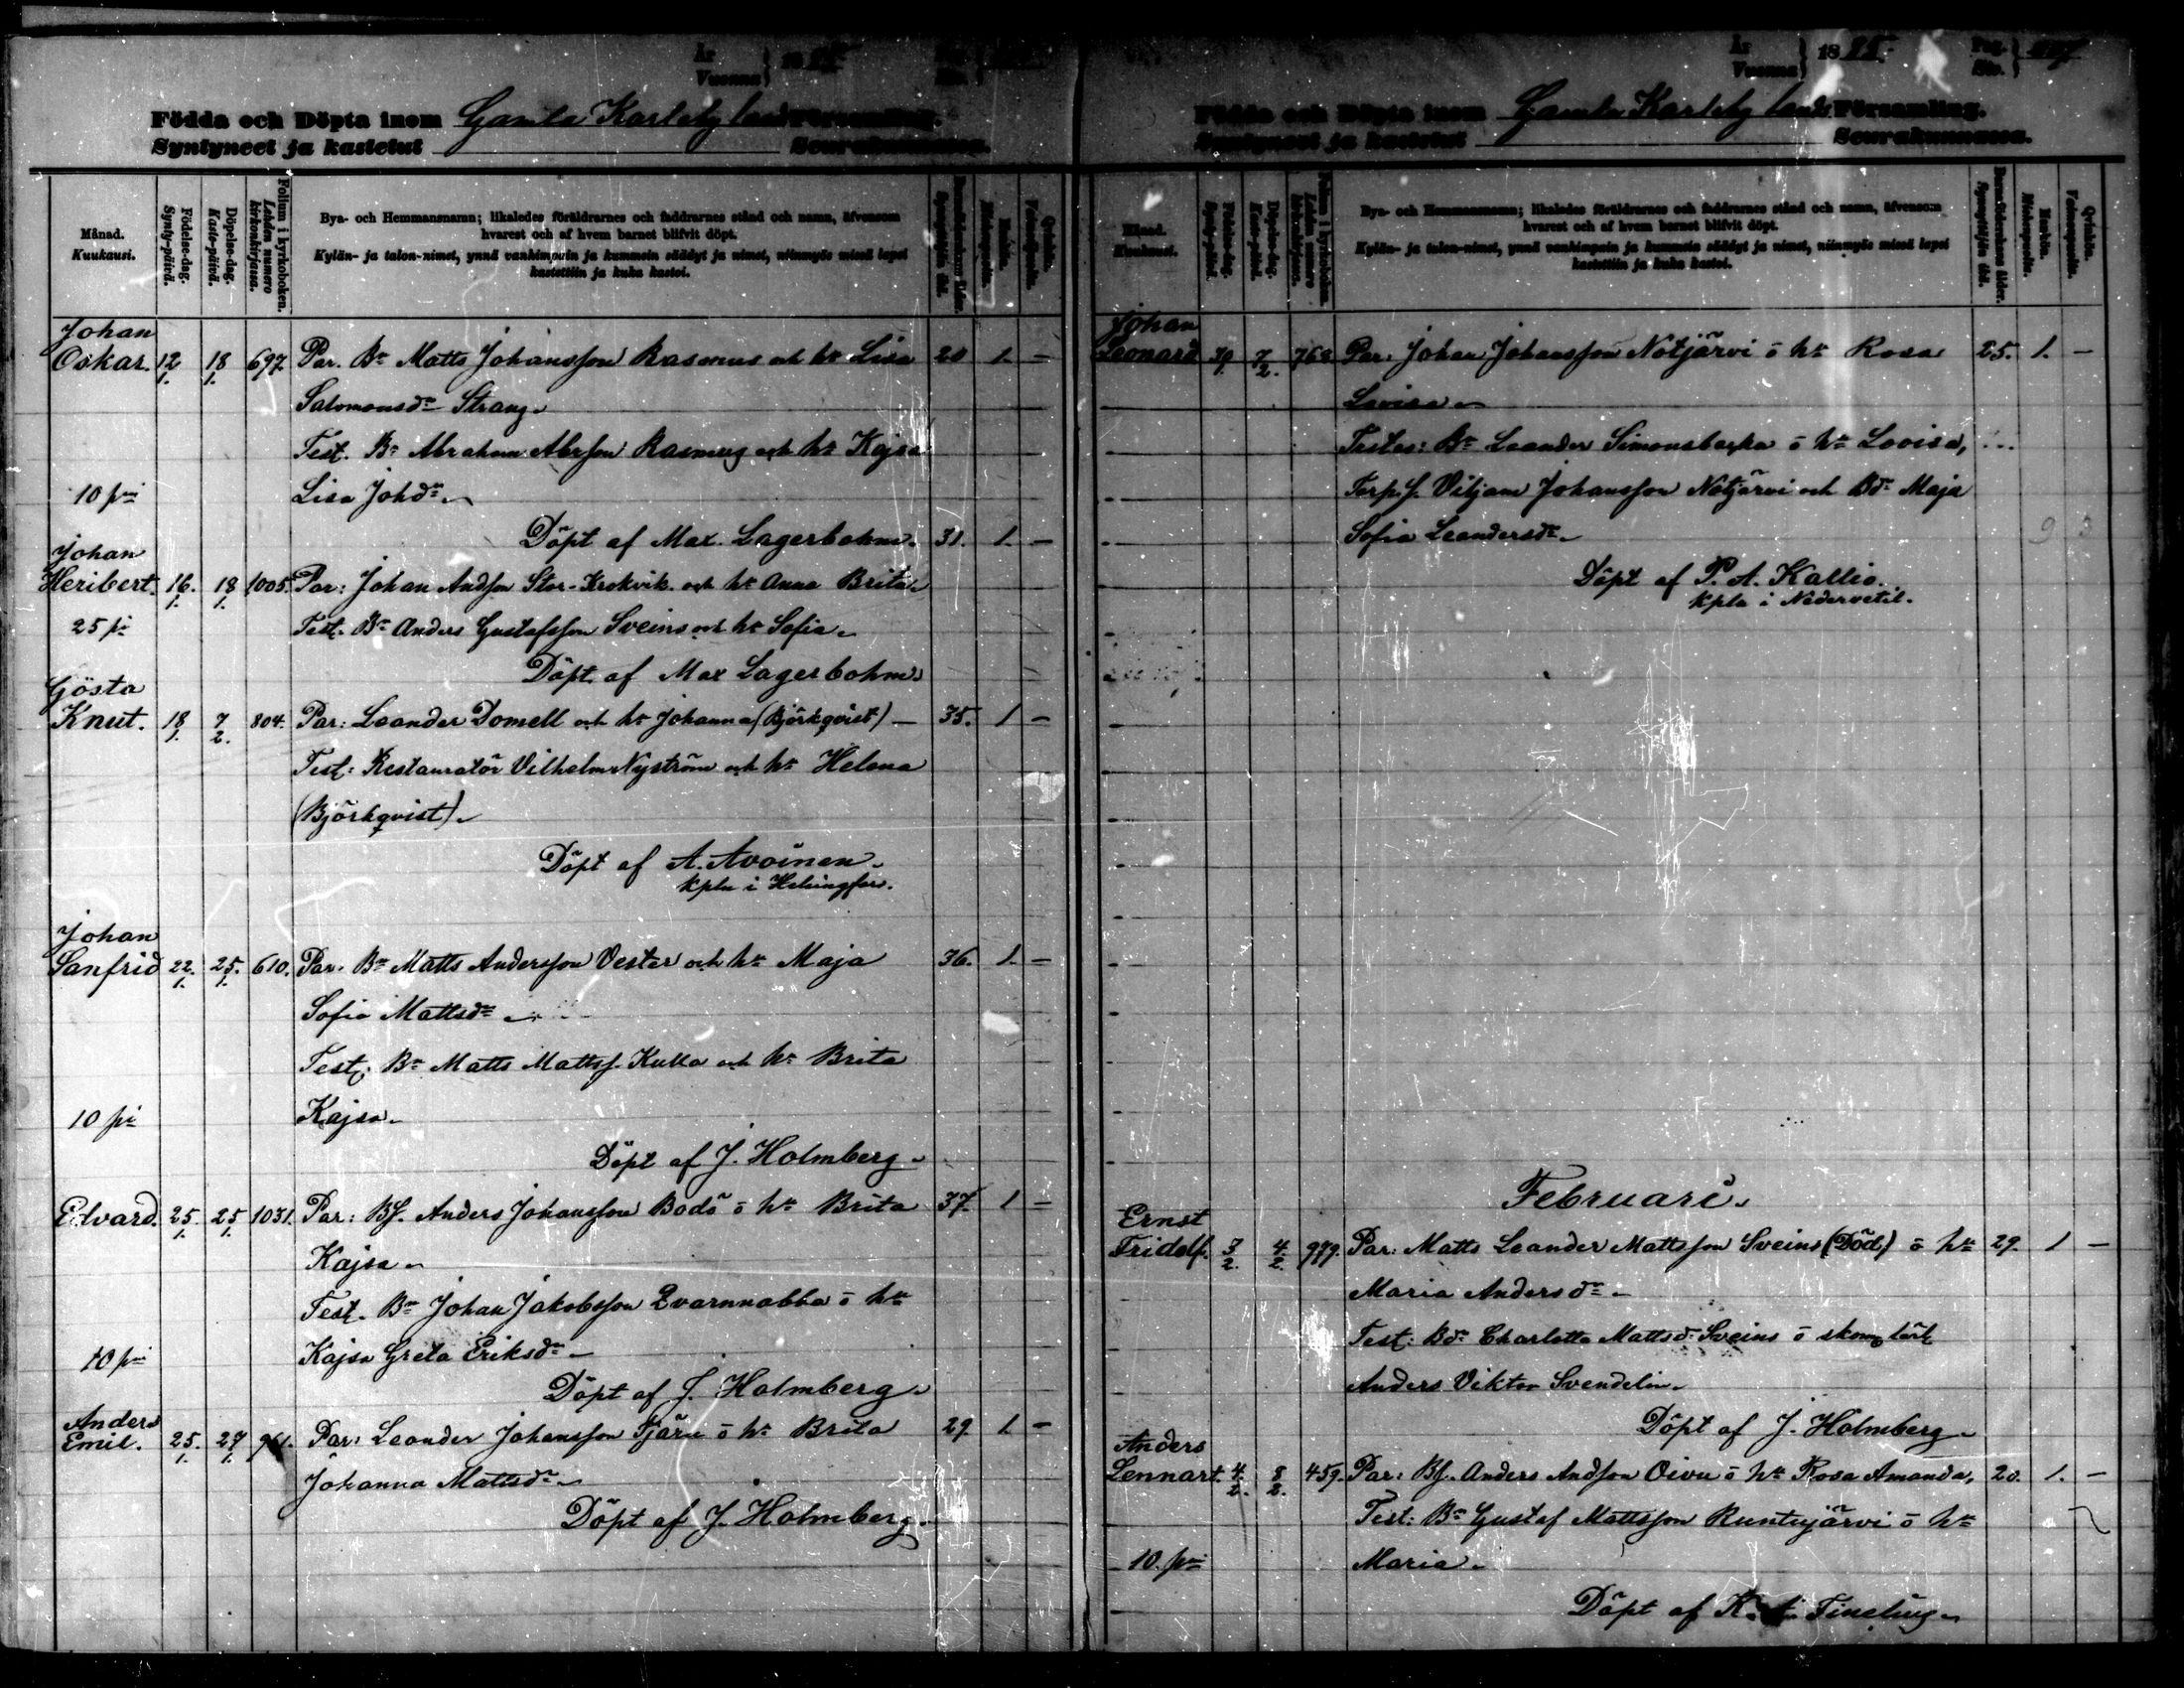 År
Vuonna } 18 95
Födda och Döpta inom Gamla Karleby lands Församling.
Syntyneet ja kastetut Seurakunnassa.
Månad.
Kuukausi.
Födelse-dag.
Synty-päivä.
Döpelse-dag.
Kaste-päivä.
Folium i kyrkoboken.
Lehden numero kirkonkirjassa.
Bya- och Hemmansnamn; likaledes föräldrarnes och faddrarnes stånd och namn, äfvensom
hvarest och af hvem barnet blifvit döpt.
Kylän- ja talon-nimet, ynnä vanhimpain ja kummein säädyt ja nimet, niinmyös missä lapsi
kastettiin ja kuka kastoi.
Johan
Oskar. 12/1. 18/1. 697. Par. Bn Matts Johansson Rasmus och hu Lisa 20 1. —
Salomonsdr Strang.
Test. Bn Abraham Abrson Rasmus och hu Kajsa
10 pi Lisa Johdr.
Döpt af Max. Lagerbohm. 31. 1. —
Johan
Heribert. 16./1. 18/1. 1005. Par: Johan Andson Stor-Krokvik och hu Anna Brita.
25 pi Test. Bn Anders Gustafsson Sveins och hu Sofia.
Döpt af Max Lagerbohm.
Gösta
Knut. 18/1. 7/2. 804. Par: Leander Domell och hu Johanna (Björkqvist) — 35. 1 —
Test: Restauratör Vilhelm Nyström och hu Helena
(Björkqvist).
Döpt af A. Avoinen.
kpln i Helsingfors.
Johan
Sanfrid 22./1. 25./1. 610. Par. Bn Matts Andersson Vester och hu Maja 36. 1. —
Sofia Mattsdr
Test: Bn Matts Mattss. Kulla och hu Brita
10 pi Kajsa.
Döpt af J. Holmberg.
Edvard. 25./1. 25/1. 1031. Par: Bs. Anders Johansson Bodö o hu Brita 37. 1 —
Kajsa.
Test. Bn Johan Jakobsson Qvarnnabba o hu
10 pi Kajsa Greta Eriksdr —
Döpt af J. Holmberg.
Anders
Emil. 25./1. 27/1. 961. Par: Leander Johansson Tjäru o hu Brita 29. 1. —
Johanna Mattsdr.
Döpt af J. Holmberg.
År
Vuonna } 18 95.
Pag.
Siv. }
Födda och Döpta inom Gamla Karleby lands Församling.
Syntyneet ja kastetut Seurakunnassa.
Månad.
Kuukausi.
Födelse-dag.
Synty-päivä.
Döpelse-dag.
Kaste-päivä.
Folium i kyrkoboken.
Lehden numero kirkonkirjassa.
Bya- och Hemmansnamn; likaledes föräldrarnes och faddrarnes stånd och namn, äfvensom
hvarest och af hvem barnet blifvit döpt.
Kylän- ja talon-nimet, ynnä vanhimpain ja kummein säädyt ja nimet, niinmyös missä lapsi
kastettiin ja kuka kastoi.
Barnaföderskans ålder.
Synnyttäjän ikä.
Mankön.
Miehenpuolia.
Qvinkön.
Vaimonpuolia.
Johan
Leonard 7/2. 768. Par: Johan Johansson Notjärvi o hu Rosa 25. 1. —
Lovisa.
Testes: Bn Leander Simonsbacka o hu Lovisa,
Torp.s. Viljam Johansson Notjärvi och Bdr Maja
Sofia Leandersdr.
Döpt af P. A. Kallio.
kpln i Nedervetil.
Februari.
Ernst
Fridolf. 3/2. 4./2. 979. Par: Matts Leander Mattsson Sveins (Död) o hu 29. 1 —
Maria Andersdr —
Test: Bdr Charlotta Mattsdr Sveins o skom lärl
Anders Viktor Svendelin.
Döpt af J. Holmberg.
Anders
Lennart. 4./2. 8/2. 459. Par: Bs. Anders Andson Oivu o hu Rosa Amanda, 20. 1. —
Test: Bn Gustaf Mattsson Runtujärvi o hu
10. pi Maria.
Döpt af K. A. Finelius.